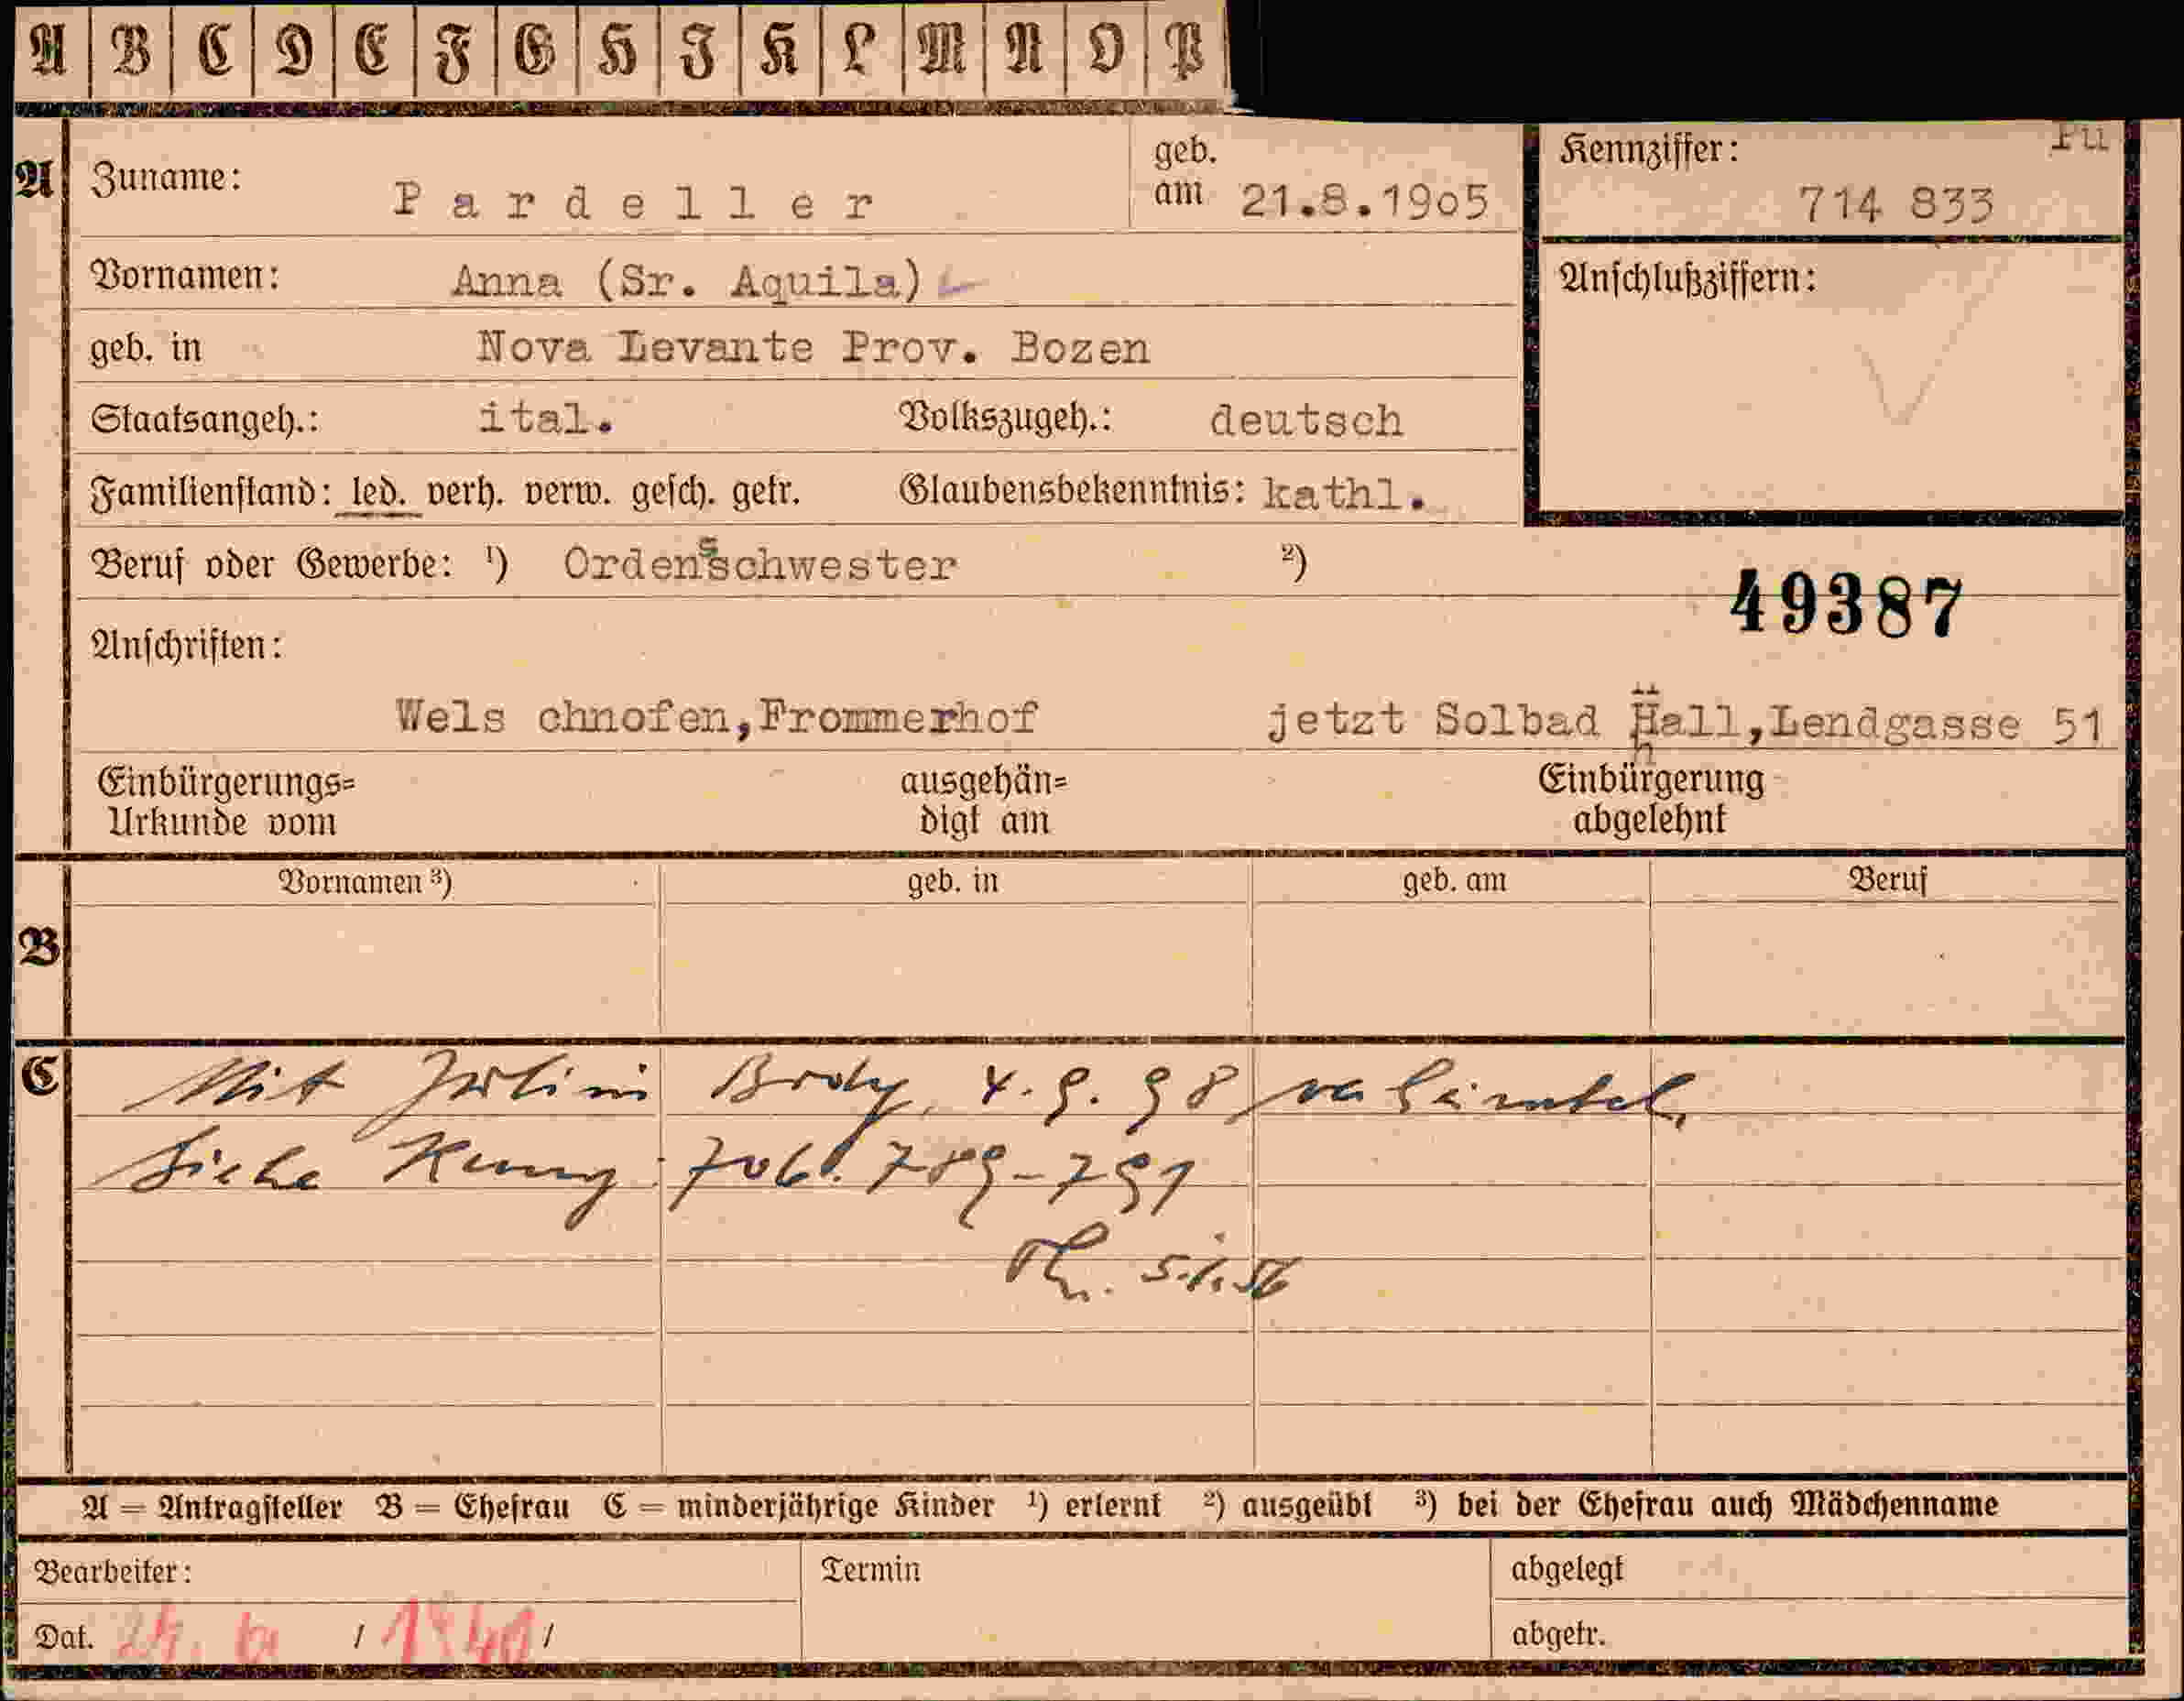 A B C D E F G H J K L M N O P
A Zuname: Pardeller geb. am 21.8.1905 Kennziffer: 714 833
Vornamen: Anna (Sr. Aquila) Anschlußziffern:
geb. in Nova Levante Prov. Bozen
Staatsangeh.: ital. Volkszugeh.: deutsch
Familienstand: led. verh. verw. gesch. getr. Glaubensbekenntnis: kathl.
Beruf oder Gewerbe: ¹) Ordensschwester ²)
49387
Anschriften:
Wels chnofen, Frommerhof jetzt Solbad Hall, Lendgasse 51
Einbürgerungs= ausgehän= Einbürgerung
Urkunde vom digt am abgelehnt
Vornamen ³) geb. in geb. am Beruf
B
C Mit 4.9.98
Siehe 789-791
5.1.56
A = Antragsteller B = Ehefrau C = minderjährige Kinder ¹) erlernt ²) ausgeübt ³) bei der Ehefrau auch Mädchenname
Bearbeiter: Termin abgelegt
Dat. / / abgetr.